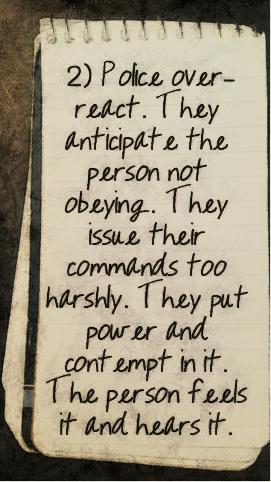 2) Police over-
react. They
anticipate the
person not
obeying. They
issue their
commands too
harshly. They put
power and
contempt in it.
The person feels
it and hears it.